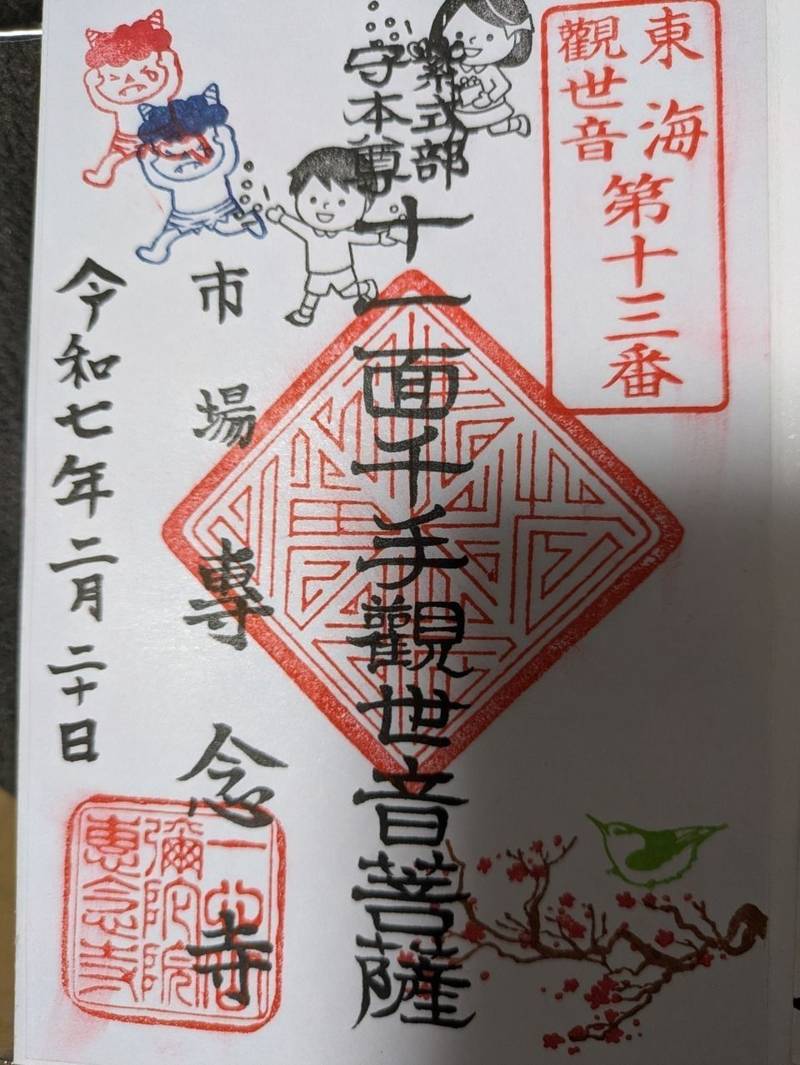 東海
觀世音
第十三番
紫式部
守本尊
十一面千手觀世音菩薩
市場專念寺
令和七年二月二十日
彌陀院
專念寺